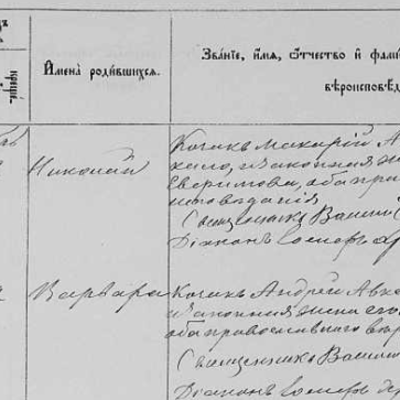 Имена̀ роди́вшихся.
Зва́нїе, и́мя, о́тчество и҆ фами́
вѣроисповѣд
креще́
Николай
Козакъ Макарій А
законная же
оба пра
исповѣданія
Священникъ Васил
Діаконъ Іосифъ
Варвара
Козакъ Андрей Авк
законная жена его
оба православнаго вѣр
Священникъ Васил
Діаконъ Іосифъ